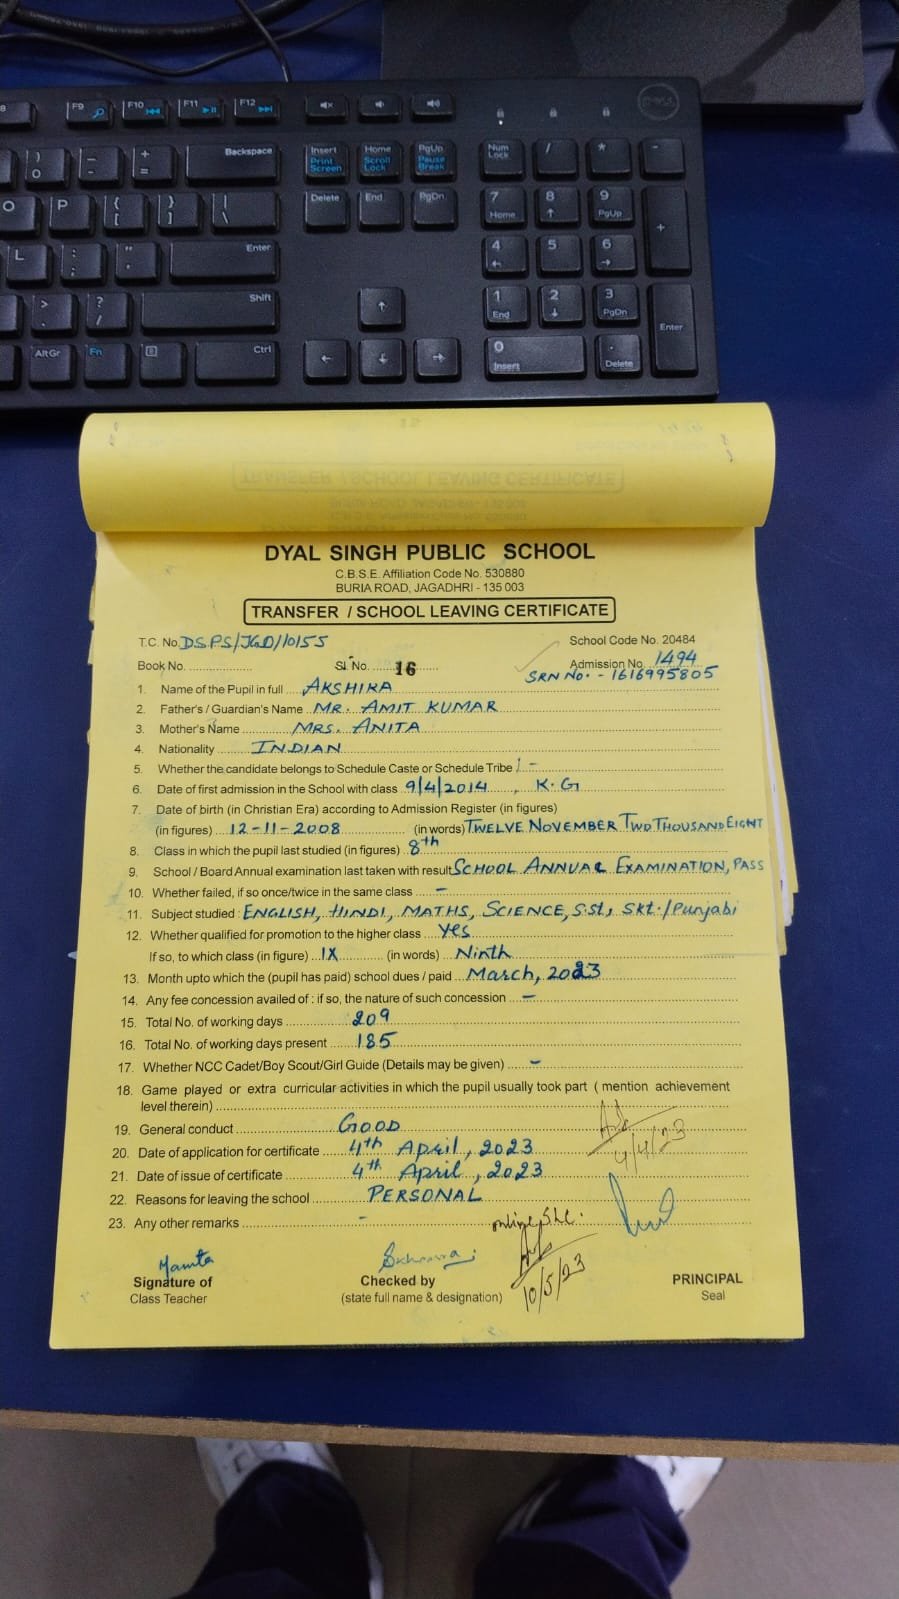 F9 F10 F11 F12
) 0 - + = Backspace Insert Print Screen Home Scroll Lock PgUp Pause Break Num Lock / * -
O P { [ } ] | \ Delete End PgDn 7 Home 8 ↑ 9 PgUp +
L : ; " ' Enter 4 ← 5 6 →
> . ? / Shift ↑ 1 End 2 ↓ 3 PgDn Enter
AltGr Fn Ctrl ← ↓ → 0 Insert . Delete
DELL
TRANSFER / SCHOOL LEAVING CERTIFICATE
DYAL SINGH PUBLIC SCHOOL
C.B.S.E. Affiliation Code No. 530880
BURIA ROAD, JAGADHRI - 135 003
TRANSFER / SCHOOL LEAVING CERTIFICATE
T.C. No. DSPS/JGD/10155 School Code No. 20484
Book No. .................. Sl. No. 16 Admission No. 1494
SRN No. - 1616995805
1. Name of the Pupil in full .... AKSHIRA
2. Father's / Guardian's Name .. MR. AMIT KUMAR
3. Mother's Name ............ MRS. ANITA
4. Nationality ....... INDIAN
5. Whether the candidate belongs to Schedule Caste or Schedule Tribe -
6. Date of first admission in the School with class .. 9/4/2014 , K.G
7. Date of birth (in Christian Era) according to Admission Register (in figures)
(in figures) .... 12-11-2008 (in words) TWELVE NOVEMBER TWO THOUSAND EIGHT
8. Class in which the pupil last studied (in figures) .. 8th
9. School / Board Annual examination last taken with result SCHOOL ANNUAL EXAMINATION, PASS
10. Whether failed, if so once/twice in the same class .... -
11. Subject studied : ENGLISH, HINDI, MATHS, SCIENCE, S.St, Skt./Punjabi
12. Whether qualified for promotion to the higher class ... Yes
If so, to which class (in figure) .. IX (in words) .. Ninth
13. Month upto which the (pupil has paid) school dues / paid .. March, 2023
14. Any fee concession availed of : if so, the nature of such concession ... -
15. Total No. of working days .............. 209
16. Total No. of working days present ..... 185
17. Whether NCC Cadet/Boy Scout/Girl Guide (Details may be given) .... -
18. Game played or extra curricular activities in which the pupil usually took part ( mention achievement
level therein)
19. General conduct ................ GOOD
4/4/23
20. Date of application for certificate ..... 4th April, 2023
21. Date of issue of certificate ............ 4th April, 2023
22. Reasons for leaving the school ......... PERSONAL
23. Any other remarks ................ -
online SLC.
Mamta
10/5/23
Signature of Checked by PRINCIPAL
Class Teacher (state full name & designation) Seal